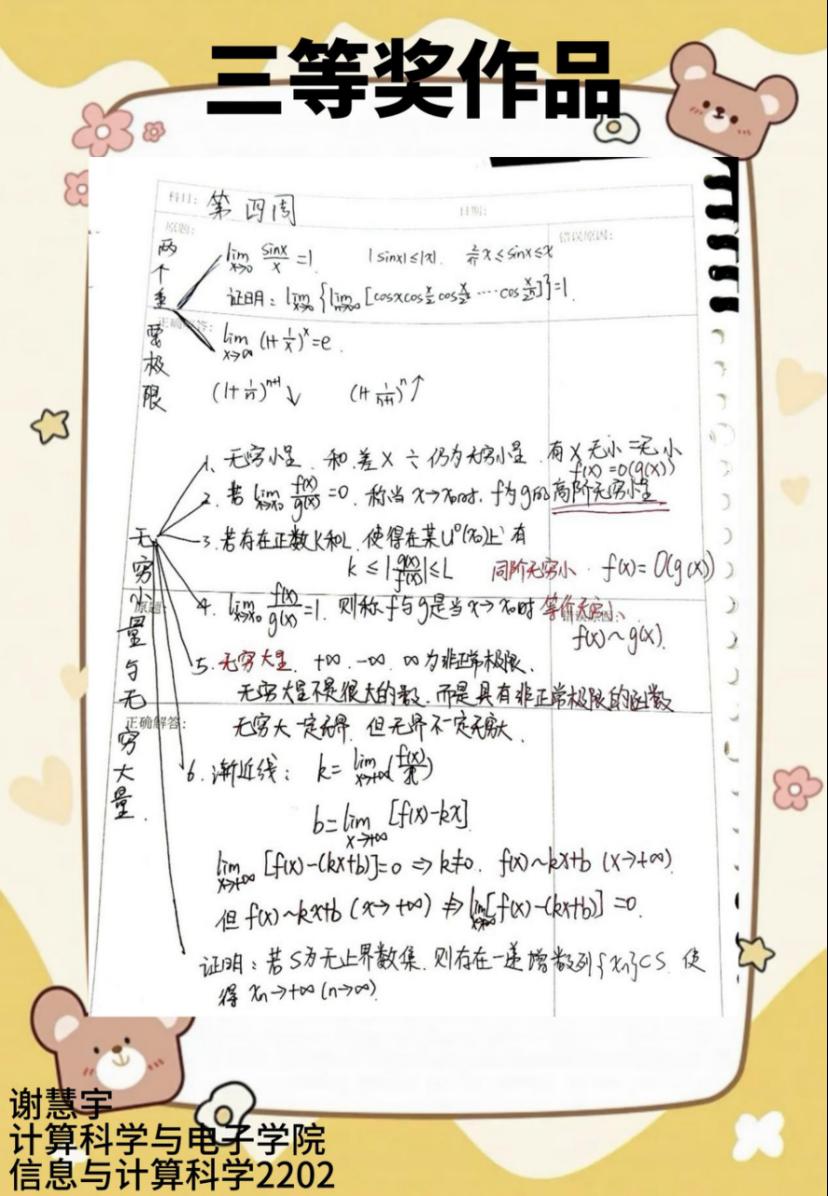 三等奖作品
科目: 第四周
日期:
原题:
错误原因:
两个重要极限
lim x→0 sinx/x =1 |sinx|≤|x| 2/π x≤sinx≤x
证明: lim x→0 {lim n→∞ [cosxcos x/2 cos x/2² ····cos x/2ⁿ]}=1
正确解答:
lim x→∞ (1+1/x)^x=e.
(1+1/n)^(n+1)↓ (1+1/(n+1))^n↑
无穷小量与无穷大量.
1. 无穷小量、和、差 × ÷ 仍为无穷小量、有×无小=无小
f(x)=o(g(x))
2. 若 lim x→x₀ f(x)/g(x) =0. 称当x→x₀时. f为g的高阶无穷小量
3. 若存在正数K和L. 使得在某U°(x₀)上有
k≤|g(x)/f(x)|≤L 同阶无穷小. f(x)=O(g(x))
原题:
错误原因:
4. lim x→x₀ f(x)/g(x)=1. 则称f与g是当x→x₀时 等价无穷小.
f(x)~g(x).
5. 无穷大量. +∞. -∞. ∞为非正常极限.
无穷大量不是很大的数. 而是具有非正常极限的函数
正确解答:
无穷大一定无界. 但无界不一定无穷大.
6. 渐近线: k= lim x→+∞ (f(x)/x)
b=lim x→+∞ [f(x)-kx]
lim x→+∞ [f(x)-(kx+b)]=0 ⇒ k≠0. f(x)~kx+b (x→+∞)
但f(x)~kx+b (x→+∞) ⇏ lim x→∞ [f(x)-(kx+b)]=0.
证明: 若S为无上界数集. 则存在一递增数列{xₙ}⊂S. 使
得 xₙ→+∞ (n→∞).
谢慧宇
计算科学与电子学院
信息与计算科学2202